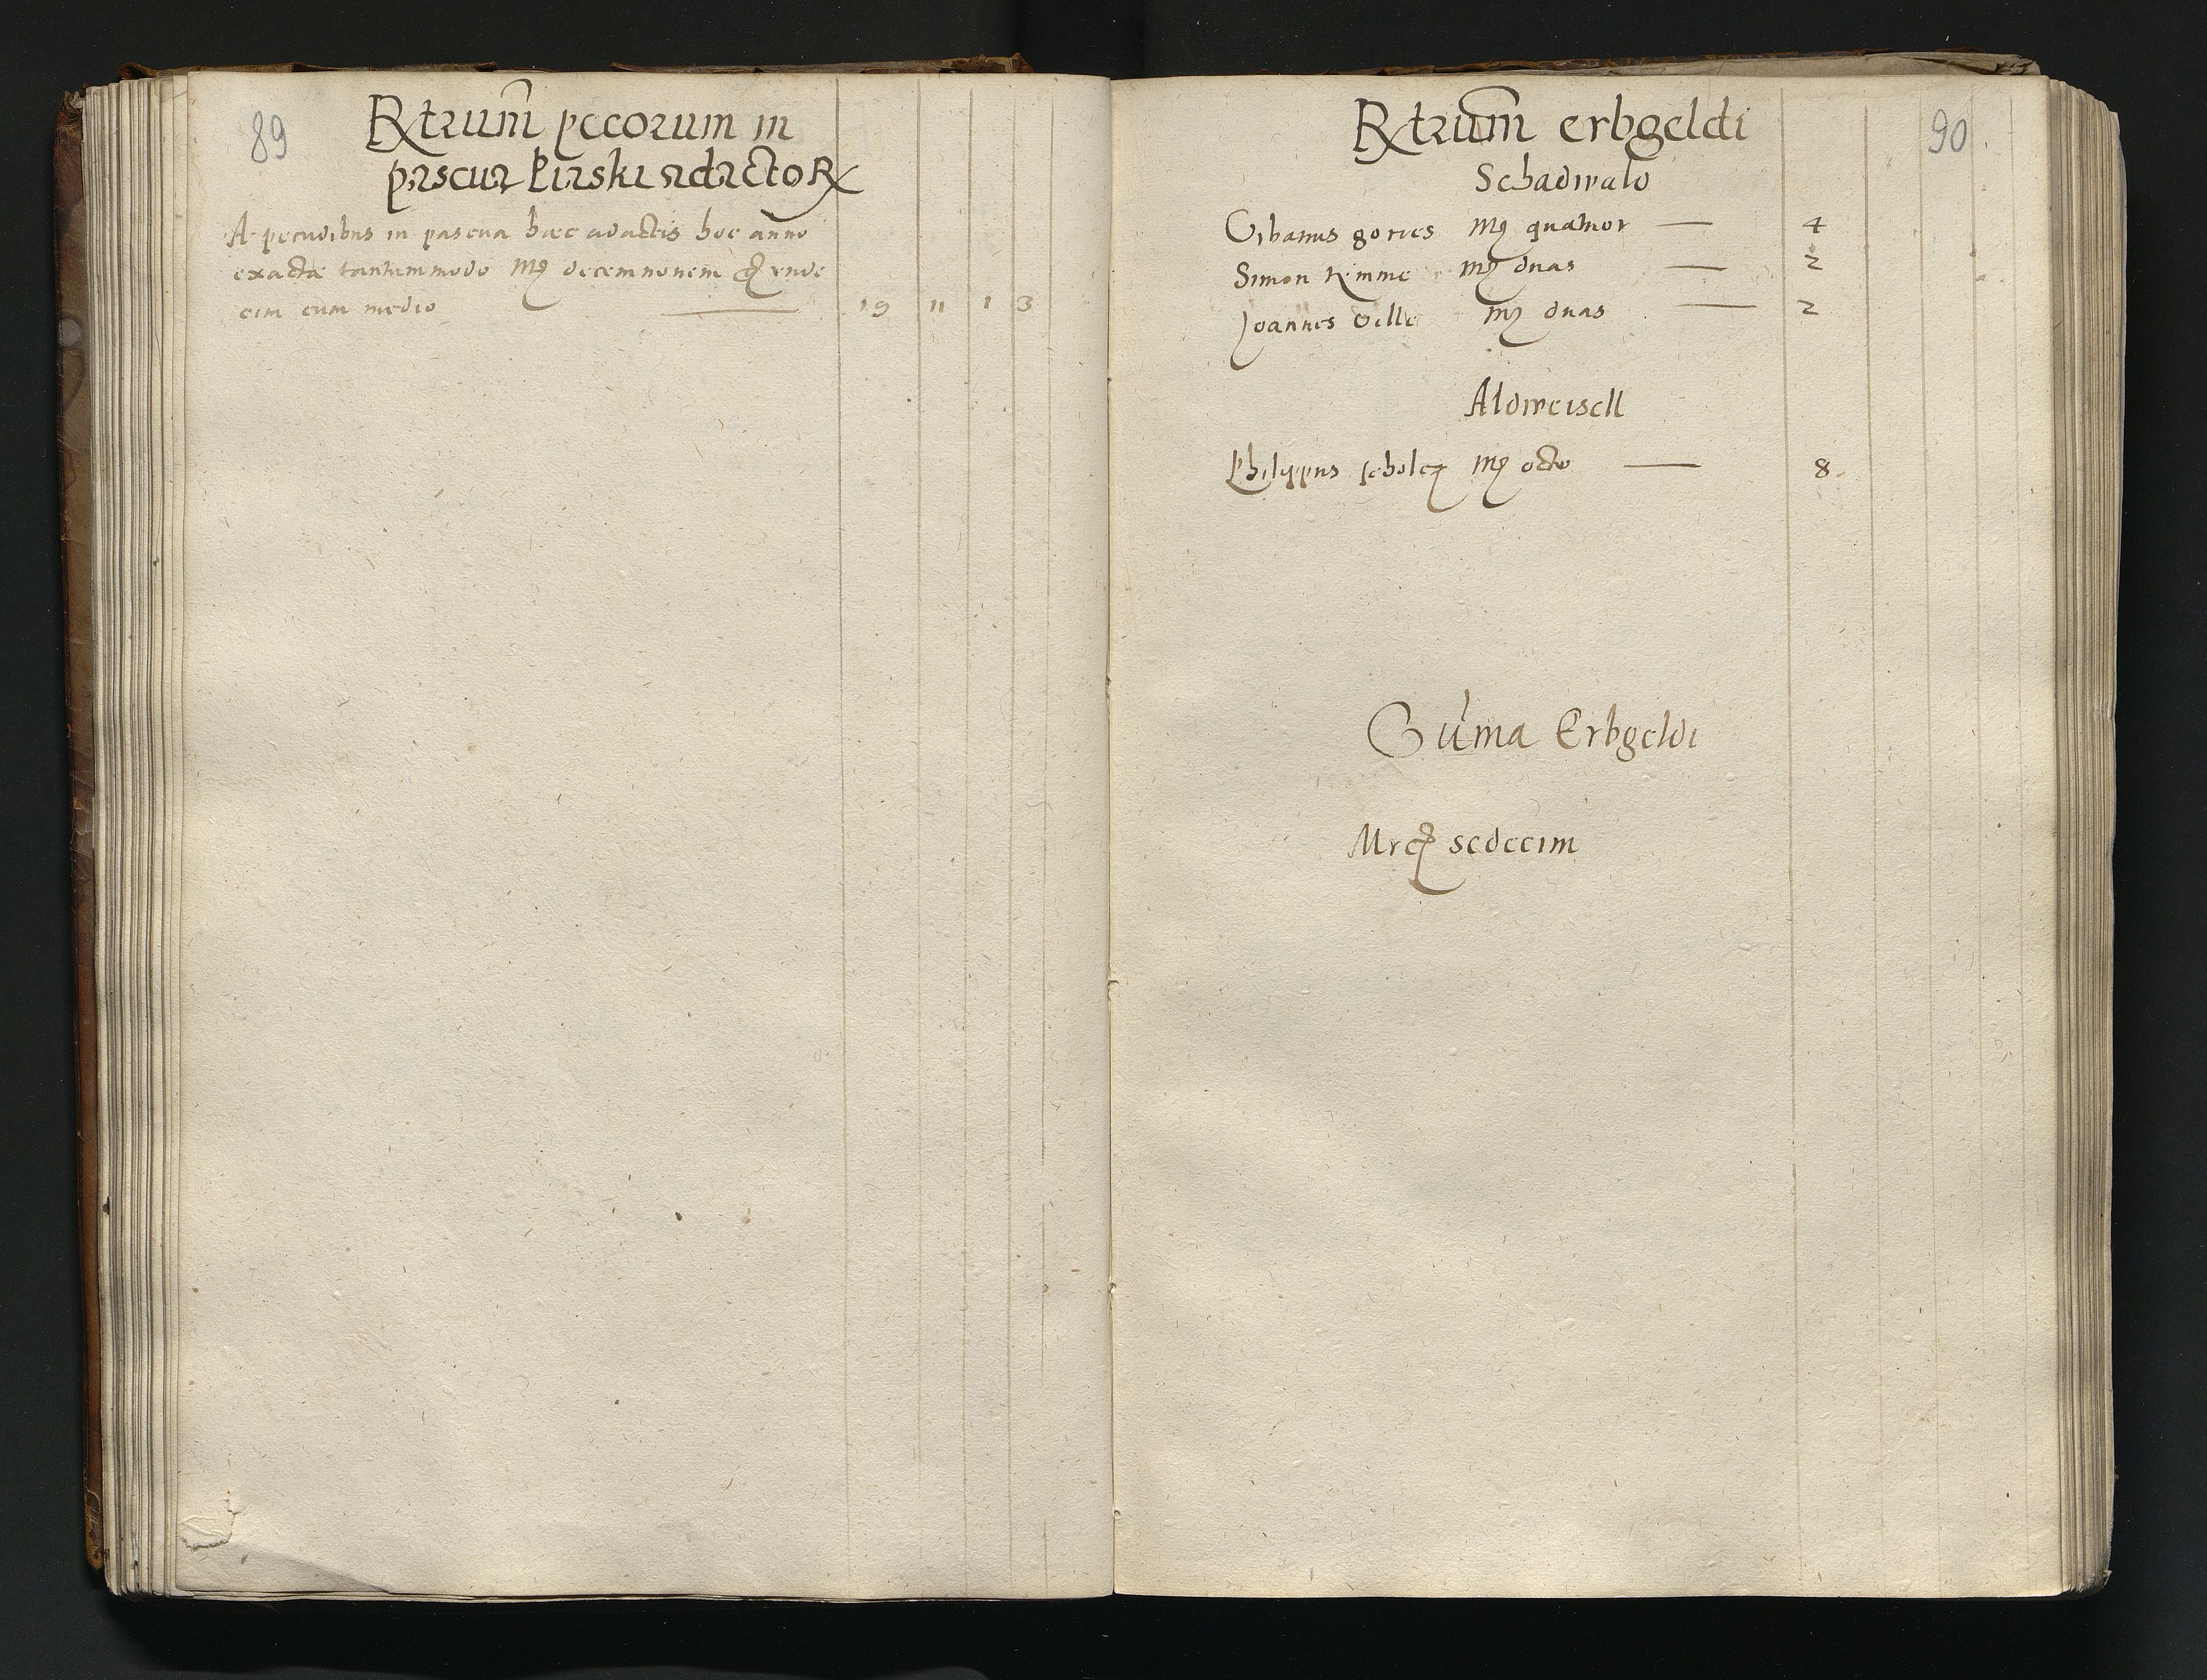 89
Rtrum pecorum in
pascua Piaski adactoR
A pecudibus in pascua hæc adactis hoc anno
exactæ tantummodo mg decemnovem q unde
cim cum medio — 19 11 1 3
90
Rtrum erbgeldi
Schadwald
Urbanus gories mg quatuor — 4
Simon Kemme mg duas — 2
Joannes Velle mg duas — 2
Aldweisell
Philippus scholcz mg octo — 8
Suma Erbgeldi
Mrcq sedecim